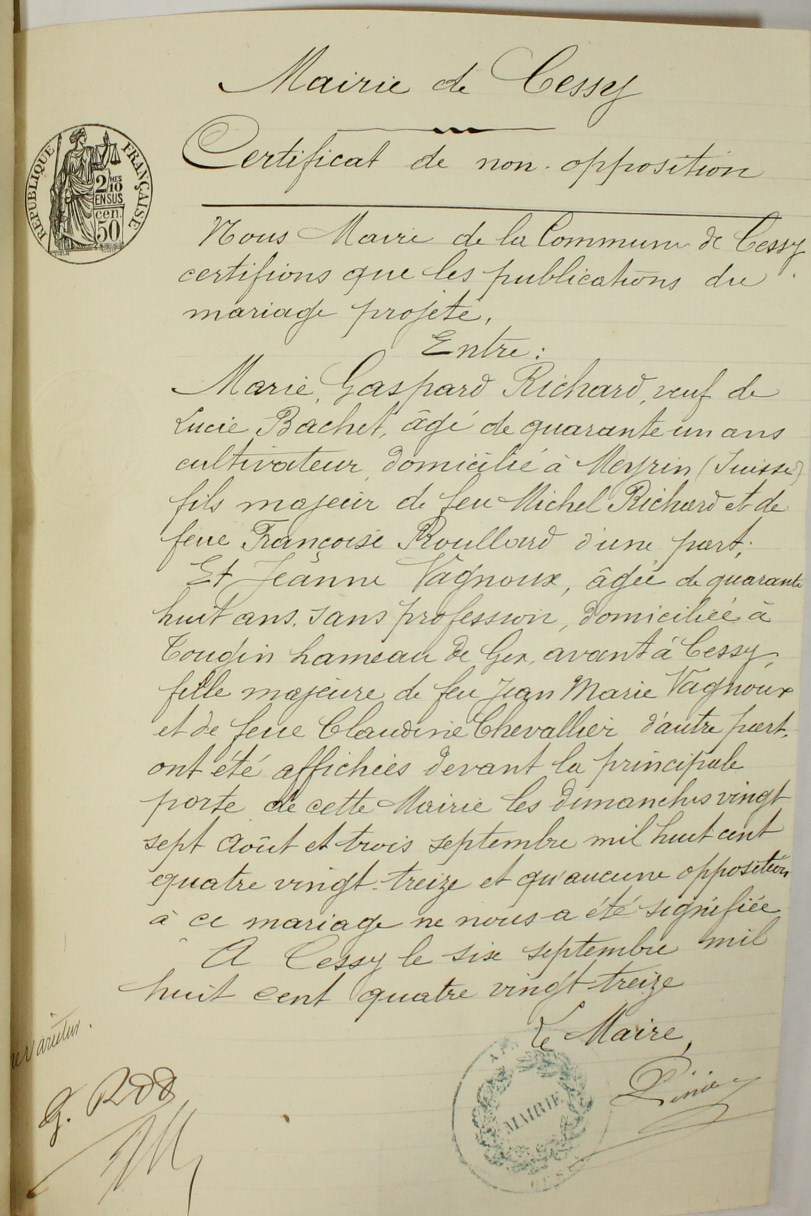 Mairie de Cessy
Certificat de non-opposition
RÉPUBLIQUE FRANÇAISE
2 MES
10
EN SUS
50 cen.
Nous Maire de la Commune de Cessy
certifions que les publications du
mariage projeté,
Entre:
Marie, Gaspard Richard, veuf de
Lucie Bachet, âgé de quarante un ans
cultivateur, domicilié à Meyrin (Suisse)
fils majeur de feu Michel Richard et de
feue Françoise Roullard d'une part;
Et Jeanne Vagnoux, âgée de quarante
huit ans, sans profession, domiciliée à
Tougin hameau de Gex, avant à Cessy,
fille majeure de feu Jean Marie Vagnoux
et de feue Claudine Chevallier d'autre part,
ont été affichées devant la principale
porte de cette Mairie les dimanches vingt
sept Août et trois septembre mil huit cent
quatre vingt-treize et qu'aucune opposition
à ce mariage ne nous a été signifiée
A Cessy le six septembre mil
huit cent quatre vingt-treize
Le Maire,
MAIRIE